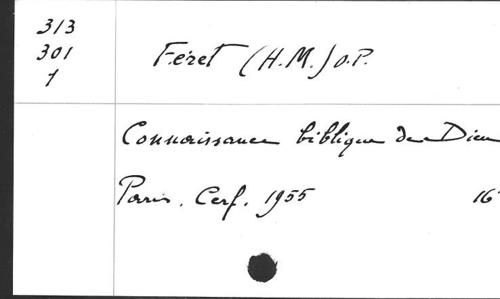 313
301
1
Féret (H.M.) O.P.
Connaissance biblique de Dieu
Paris. Cerf. 1955 16